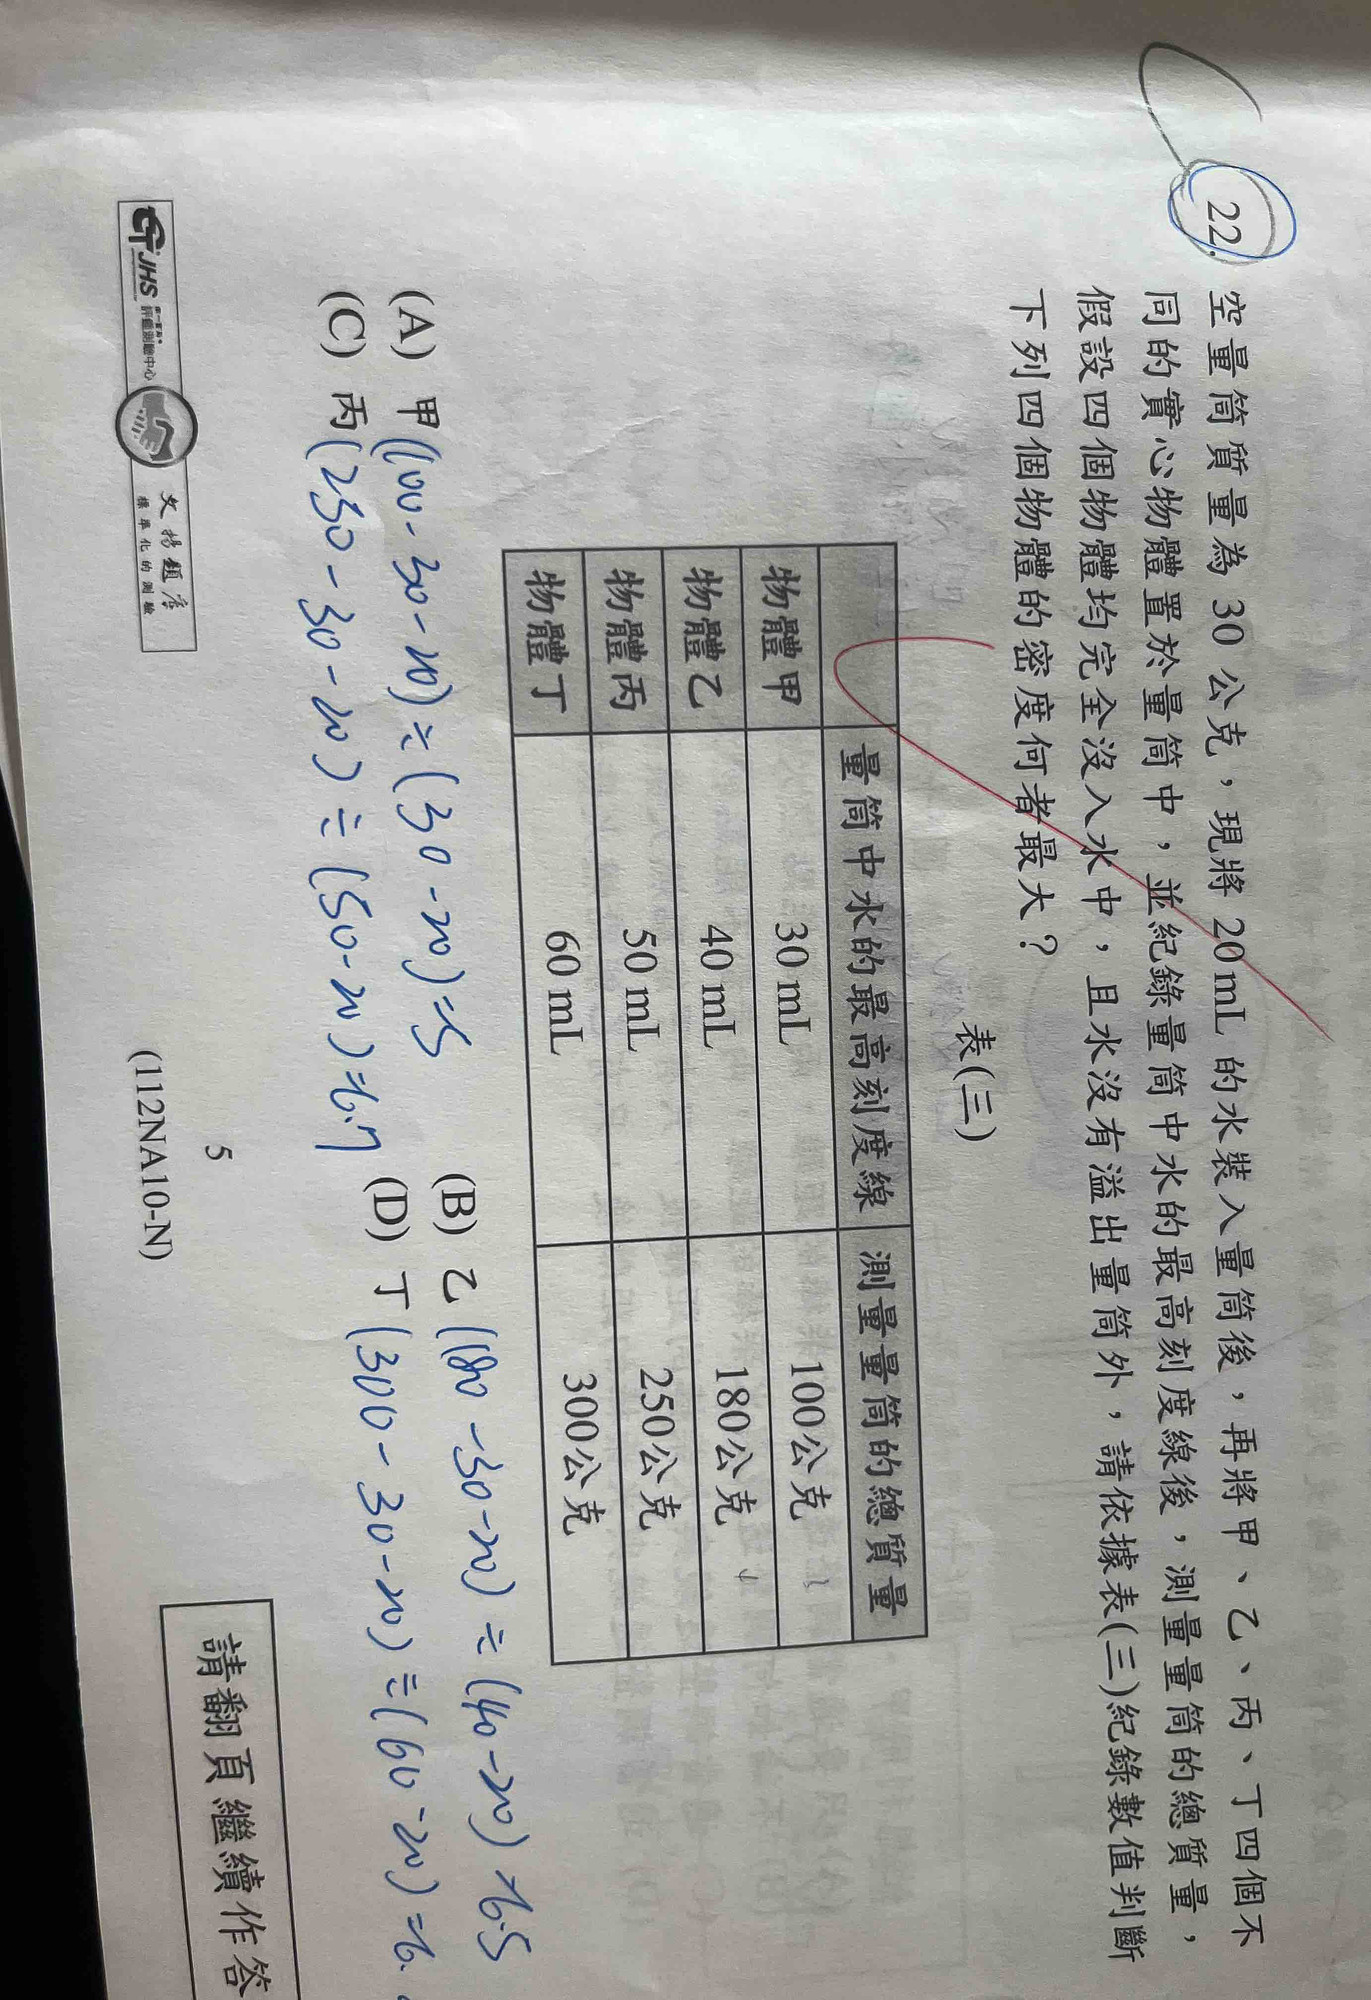 22. 空量筒質量為 30 公克，現將 20 mL 的水裝入量筒後，再將甲、乙、丙、丁四個不
同的實心物體置於量筒中，並紀錄量筒中水的最高刻度線後，測量量筒的總質量，
假設四個物體均完全沒入水中，且水沒有溢出量筒外，請依據表(三)紀錄數值判斷
下列四個物體的密度何者最大？
表(三)
量筒中水的最高刻度線 測量量筒的總質量
物體甲 30 mL 100公克
物體乙 40 mL 180公克
物體丙 50 mL 250公克
物體丁 60 mL 300公克
(A) 甲 (100-30-20)÷(30-20)=5 (B) 乙 (180-30-20)÷(40-20)=6.5
(C) 丙 (250-30-20)÷(50-20)=6.7 (D) 丁 (300-30-20)÷(60-20)=6.
JHS 評量測驗中心 文揚題庫
標準化的測驗
5
(112NA10-N)
請翻頁繼續作答